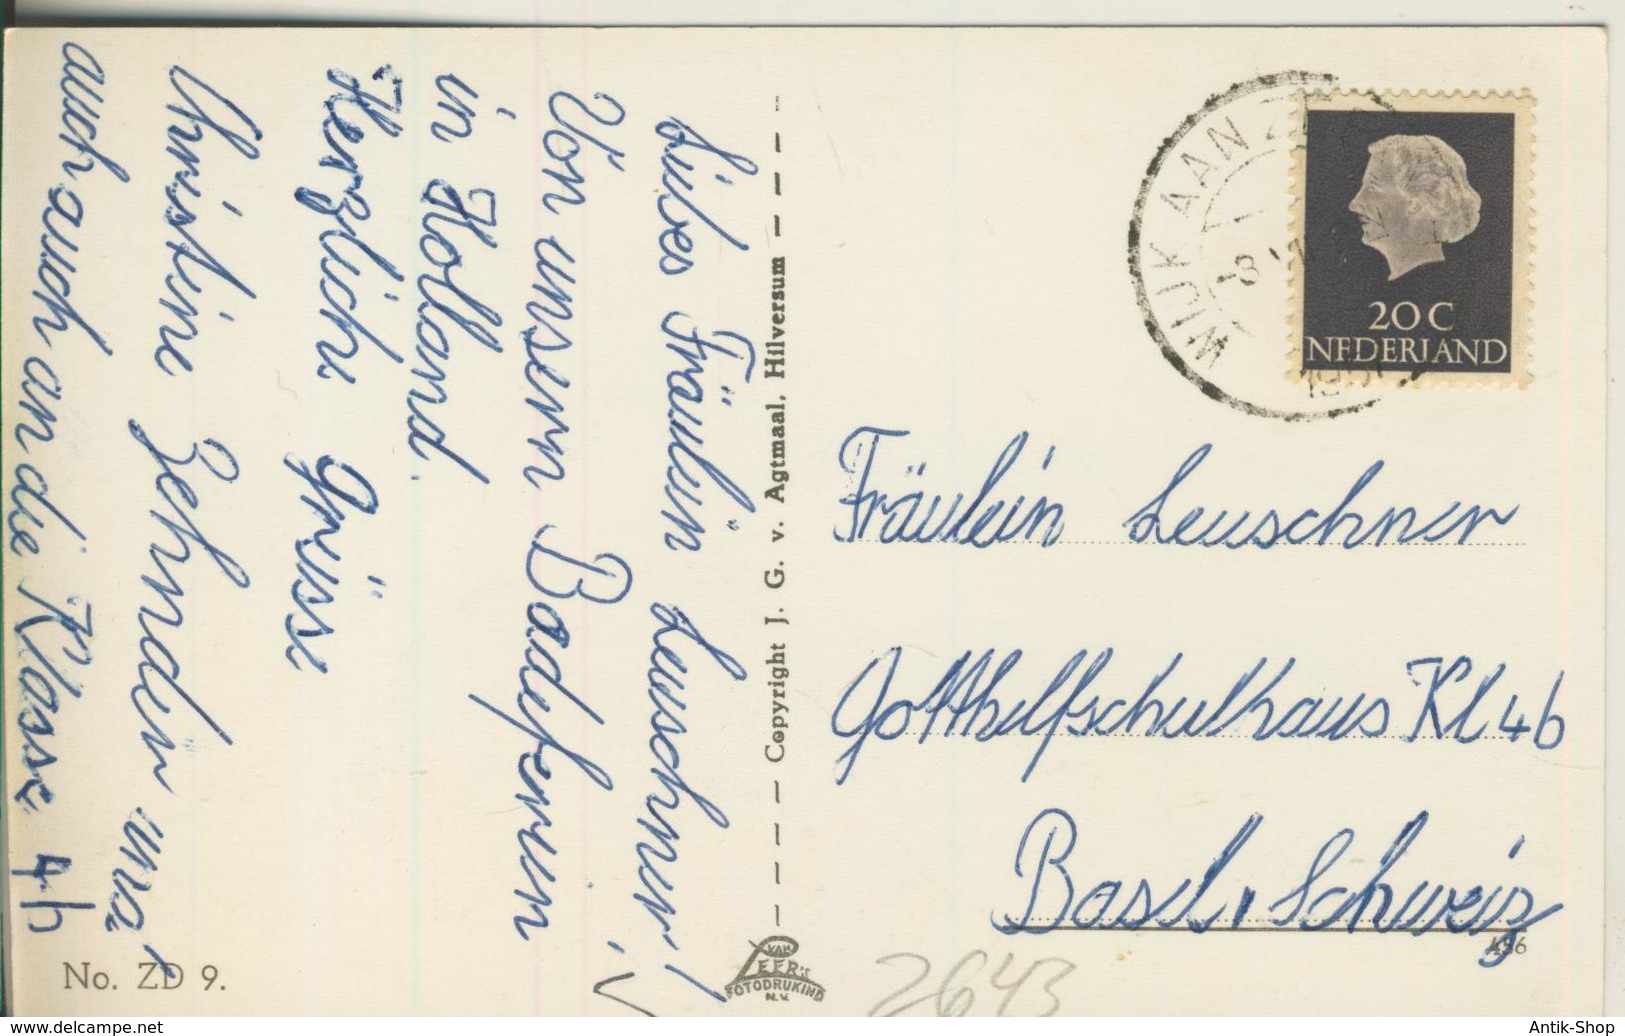 Liebes Fräulein Leuschner!
Von unsern Badeferien
in Holland.
Herzliche Grüsse
Christine Zehnder und
auch auch an die Klasse 4b
No. ZD 9.
Copyright J. G. v. Agtmaal, Hilversum
VAN
LEER'S
FOTODRUKIND
N.V.
WIJK AAN ZEE
20 C
NEDERLAND
Fräulein Leuschner
Gotthelfschulhaus Kl 4b
Basel, Schweiz
456
2643
www.delcampe.net
Antik-Shop
Antik-Shop